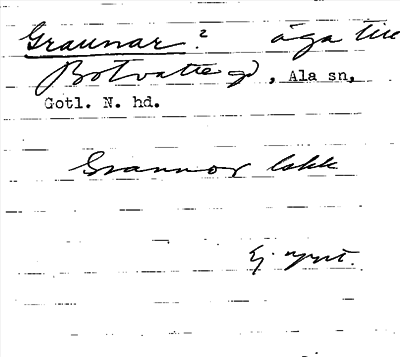 Graunar? äga till
Botvatte gd, Ala sn,
Gotl. N. hd.
Grannor lakk
Ej nytt.